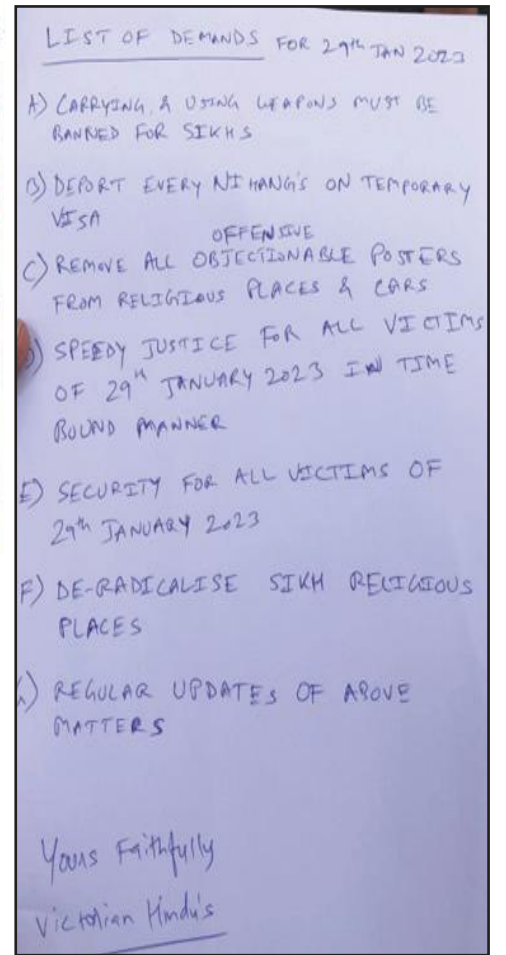 LIST OF DEMANDS FOR 29th JAN 2023
A) CARRYING & USING WEAPONS MUST BE
BANNED FOR SIKHS
B) DEPORT EVERY NIHANG'S ON TEMPORARY
VISA
OFFENSIVE
C) REMOVE ALL OBJECTIONABLE POSTERS
FROM RELIGIOUS PLACES & CARS
D) SPEEDY JUSTICE FOR ALL VICTIMS
OF 29th JANUARY 2023 IN TIME
BOUND MANNER
E) SECURITY FOR ALL VICTIMS OF
29th JANUARY 2023
F) DE-RADICALISE SIKH RELIGIOUS
PLACES
) REGULAR UPDATES OF ABOVE
MATTERS
Yours Faithfully
Victorian Hindu's